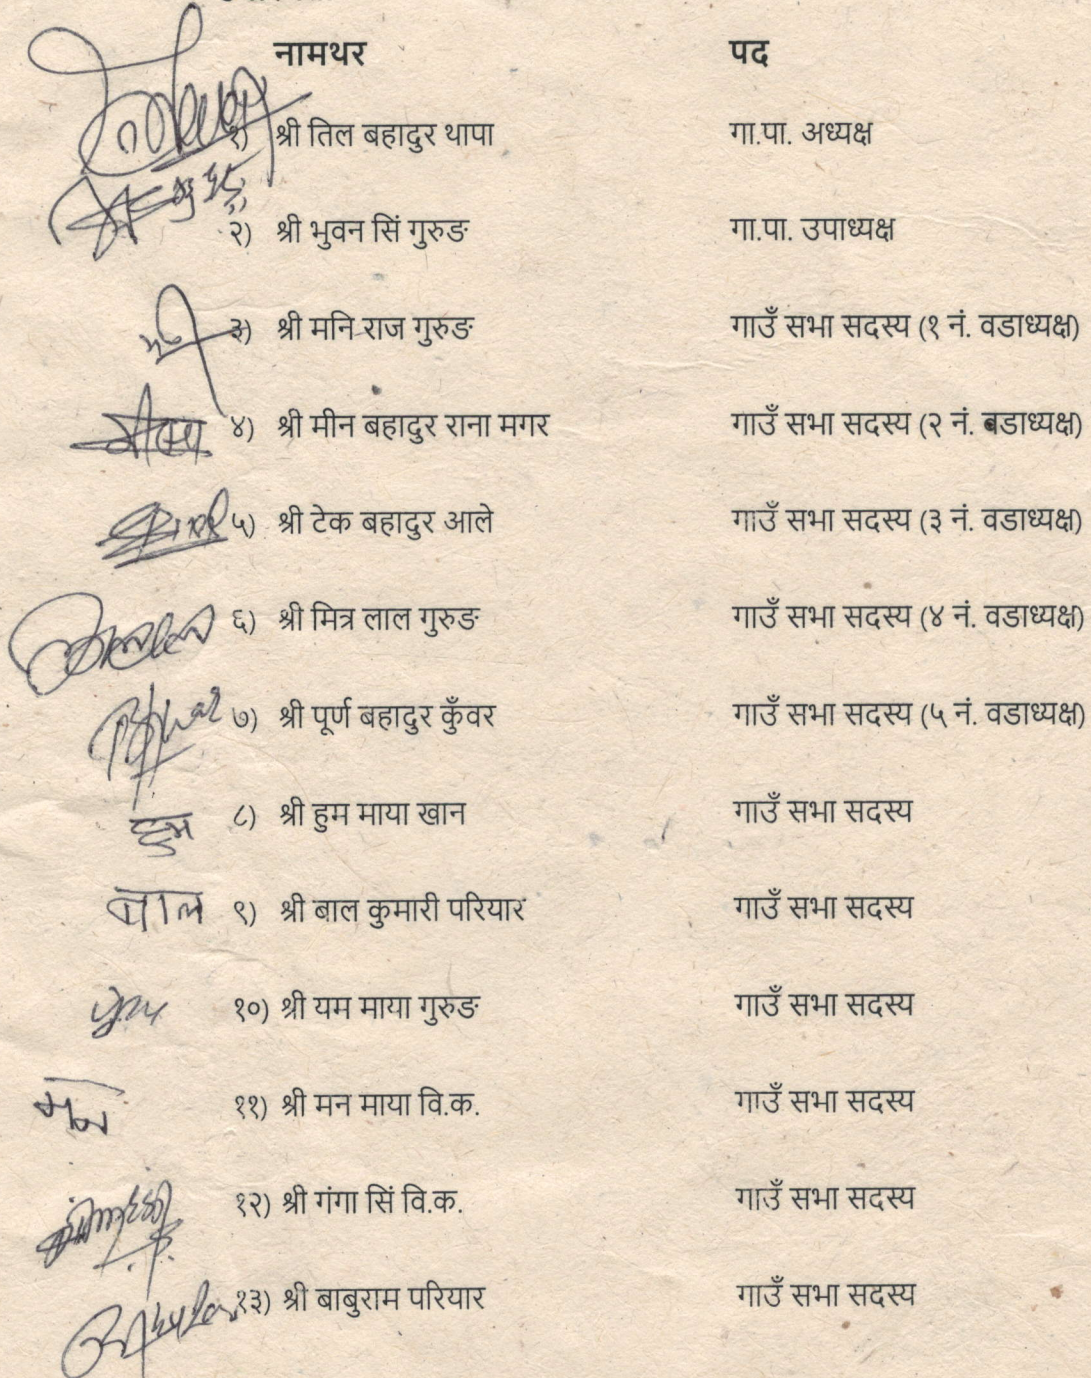 नामथर पद
१) श्री तिल बहादुर थापा गा.पा. अध्यक्ष
२) श्री भुवन सिं गुरुङ गा.पा. उपाध्यक्ष
३) श्री मनि राज गुरुङ गाउँ सभा सदस्य (१ नं. वडाध्यक्ष)
४) श्री मीन बहादुर राना मगर गाउँ सभा सदस्य (२ नं. वडाध्यक्ष)
५) श्री टेक बहादुर आले गाउँ सभा सदस्य (३ नं. वडाध्यक्ष)
६) श्री मित्र लाल गुरुङ गाउँ सभा सदस्य (४ नं. वडाध्यक्ष)
७) श्री पूर्ण बहादुर कुँवर गाउँ सभा सदस्य (५ नं. वडाध्यक्ष)
हुम ८) श्री हुम माया खान गाउँ सभा सदस्य
बाल ९) श्री बाल कुमारी परियार गाउँ सभा सदस्य
१०) श्री यम माया गुरुङ गाउँ सभा सदस्य
मन ११) श्री मन माया वि.क. गाउँ सभा सदस्य
१२) श्री गंगा सिं वि.क. गाउँ सभा सदस्य
१३) श्री बाबुराम परियार गाउँ सभा सदस्य